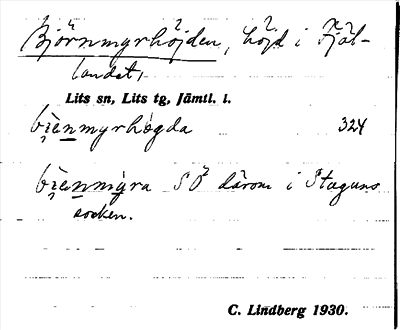 Björnmyrhöjden, höjd i Fjäl-
landet,
Lits sn, Lits tg, Jämtl. l.
bi̭ènmyrhøgda 324
bi̭ènmýra SO därom i Stuguns
socken.
C. Lindberg 1930.